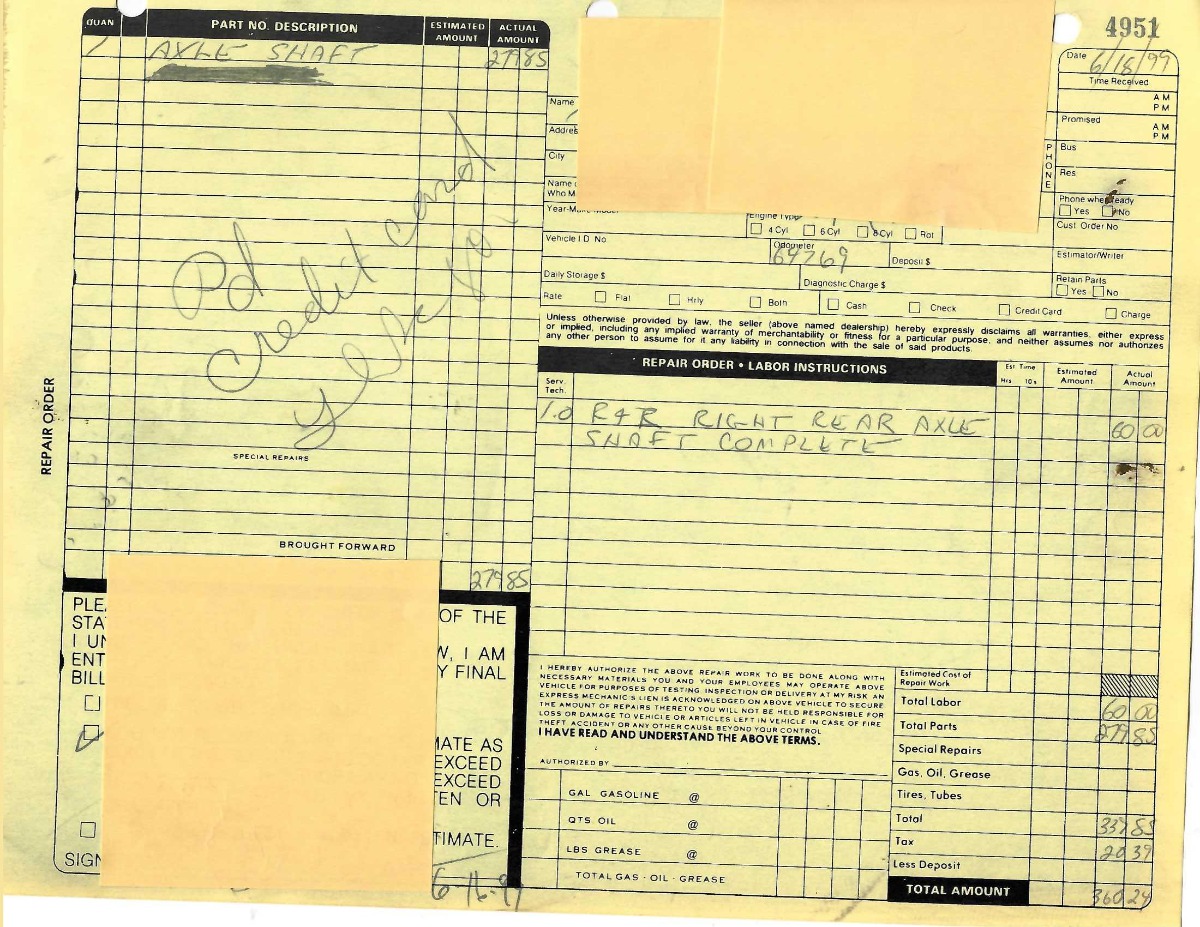 QUAN PART NO. DESCRIPTION ESTIMATED AMOUNT ACTUAL AMOUNT
1 AXLE SHAFT 279 85
Pd
credit card
SPECIAL REPAIRS
BROUGHT FORWARD
279 85
REPAIR ORDER
OF THE
I AM
FINAL
MATE AS
EXCEED
EXCEED
TEN OR
TIMATE.
4951
Date 6/18/99
Time Received
AM
PM
Promised
AM
PM
PHONE
Bus
Res
Phone when ready
Yes No
Cust. Order No
Estimator/Writer
Retain Parts
Yes No
Name
City
Engine Type
4 Cyl 6 Cyl 8 Cyl Rot
Vehicle I D No
Odometer
64769
Deposit $
Daily Storage $ Diagnostic Charge $
Rate Flat Hrly Both Cash Check Credit Card Charge
Unless otherwise provided by law, the seller (above named dealership) hereby expressly disclaims all warranties, either express
or implied, including any implied warranty of merchantability or fitness for a particular purpose, and neither assumes nor authorizes
any other person to assume for it any liability in connection with the sale of said products.
REPAIR ORDER • LABOR INSTRUCTIONS
Est Time
Hrs 10's
Estimated Amount
Actual Amount
Serv. Tech.
1.0 R&R RIGHT REAR AXLE 60 00
SHAFT COMPLETE
I HEREBY AUTHORIZE THE ABOVE REPAIR WORK TO BE DONE ALONG WITH
NECESSARY MATERIALS YOU AND YOUR EMPLOYEES MAY OPERATE ABOVE
VEHICLE FOR PURPOSES OF TESTING INSPECTION OR DELIVERY AT MY RISK AN
EXPRESS MECHANIC'S LIEN IS ACKNOWLEDGED ON ABOVE VEHICLE TO SECURE
THE AMOUNT OF REPAIRS THERETO YOU WILL NOT BE HELD RESPONSIBLE FOR
LOSS OR DAMAGE TO VEHICLE OR ARTICLES LEFT IN VEHICLE IN CASE OF FIRE
THEFT ACCIDENT OR ANY OTHER CAUSE BEYOND YOUR CONTROL
I HAVE READ AND UNDERSTAND THE ABOVE TERMS.
AUTHORIZED BY
GAL GASOLINE @
QTS OIL @
LBS GREASE @
TOTAL GAS - OIL - GREASE
Estimated Cost of Repair Work
Total Labor 60 00
Total Parts 279 85
Special Repairs
Gas, Oil, Grease
Tires, Tubes
Total 339 85
Tax 20 39
Less Deposit
TOTAL AMOUNT 360 24